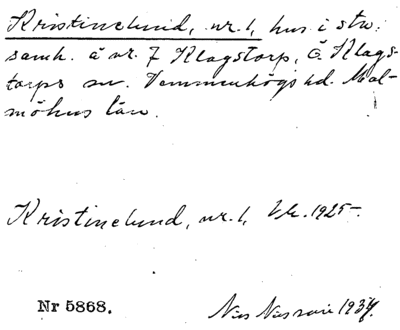 Kristinelund, nr. 1, hus i stw.
samh. å nr. 7 Klagstorp, Ö. Klags-
torps sn. Vemmenhögs hd. Mal-
möhus län.
Kristinelund, nr. 1, 1925
Nr 5868.
1934.